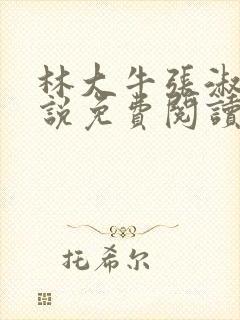 林大牛張淑
說免費閱讀
托希尔